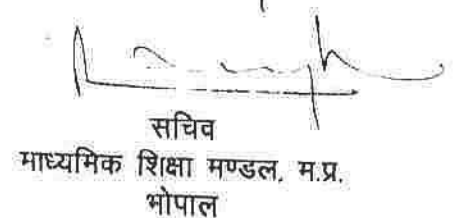 सचिव
माध्यमिक शिक्षा मण्डल, म.प्र.
भोपाल